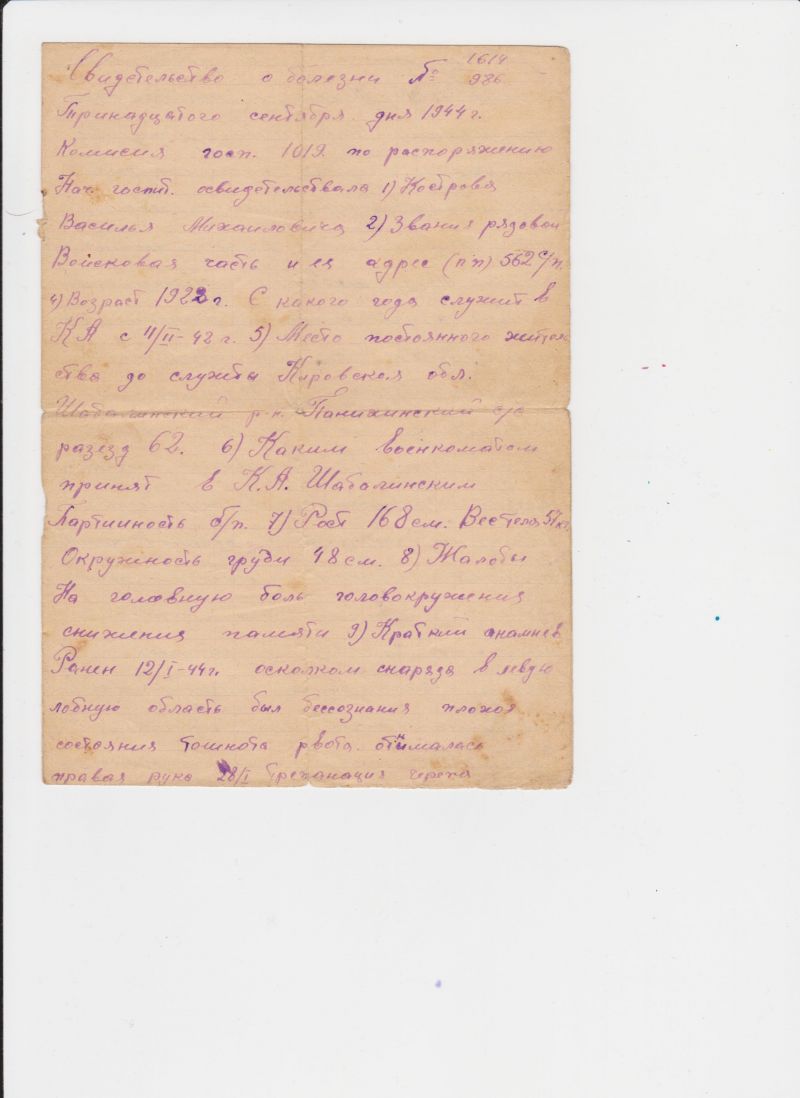 Свидетельство о болезни №
1619
986
Тринадцатого сентября дня 1944 г.
Комисия госп. 1019 по распоряжению
Нач. госпит. освидетельствала 1) Кострова
Василья Михаиловича 2) Звания рядовой
Войсковая часть и ея адрес (п п) 562 с/п
4) Возраст 1922 г. С какого года служит в
КА с 11/II-42 г. 5) Место постоянного житель
ства до службы Кировская обл.
Шабалинский р-н. Панихинский с/с
разезд 62. 6) Каким военкоматом
принят в К.А. Шабалинским
Партииность б/п. 7) Рост 168 см. Вес тела 57 кг.
Окружность груди 48 см. 8) Жалобы
На головную боль головокружения
снижения памяти 9) Краткий анамнез
Ранен 12/I-44 г. осколком снаряда в левую
лобную область был бессознания плохоя
состояния тошнота рвота. отнималась
правая рука 28/I трепанация черепа